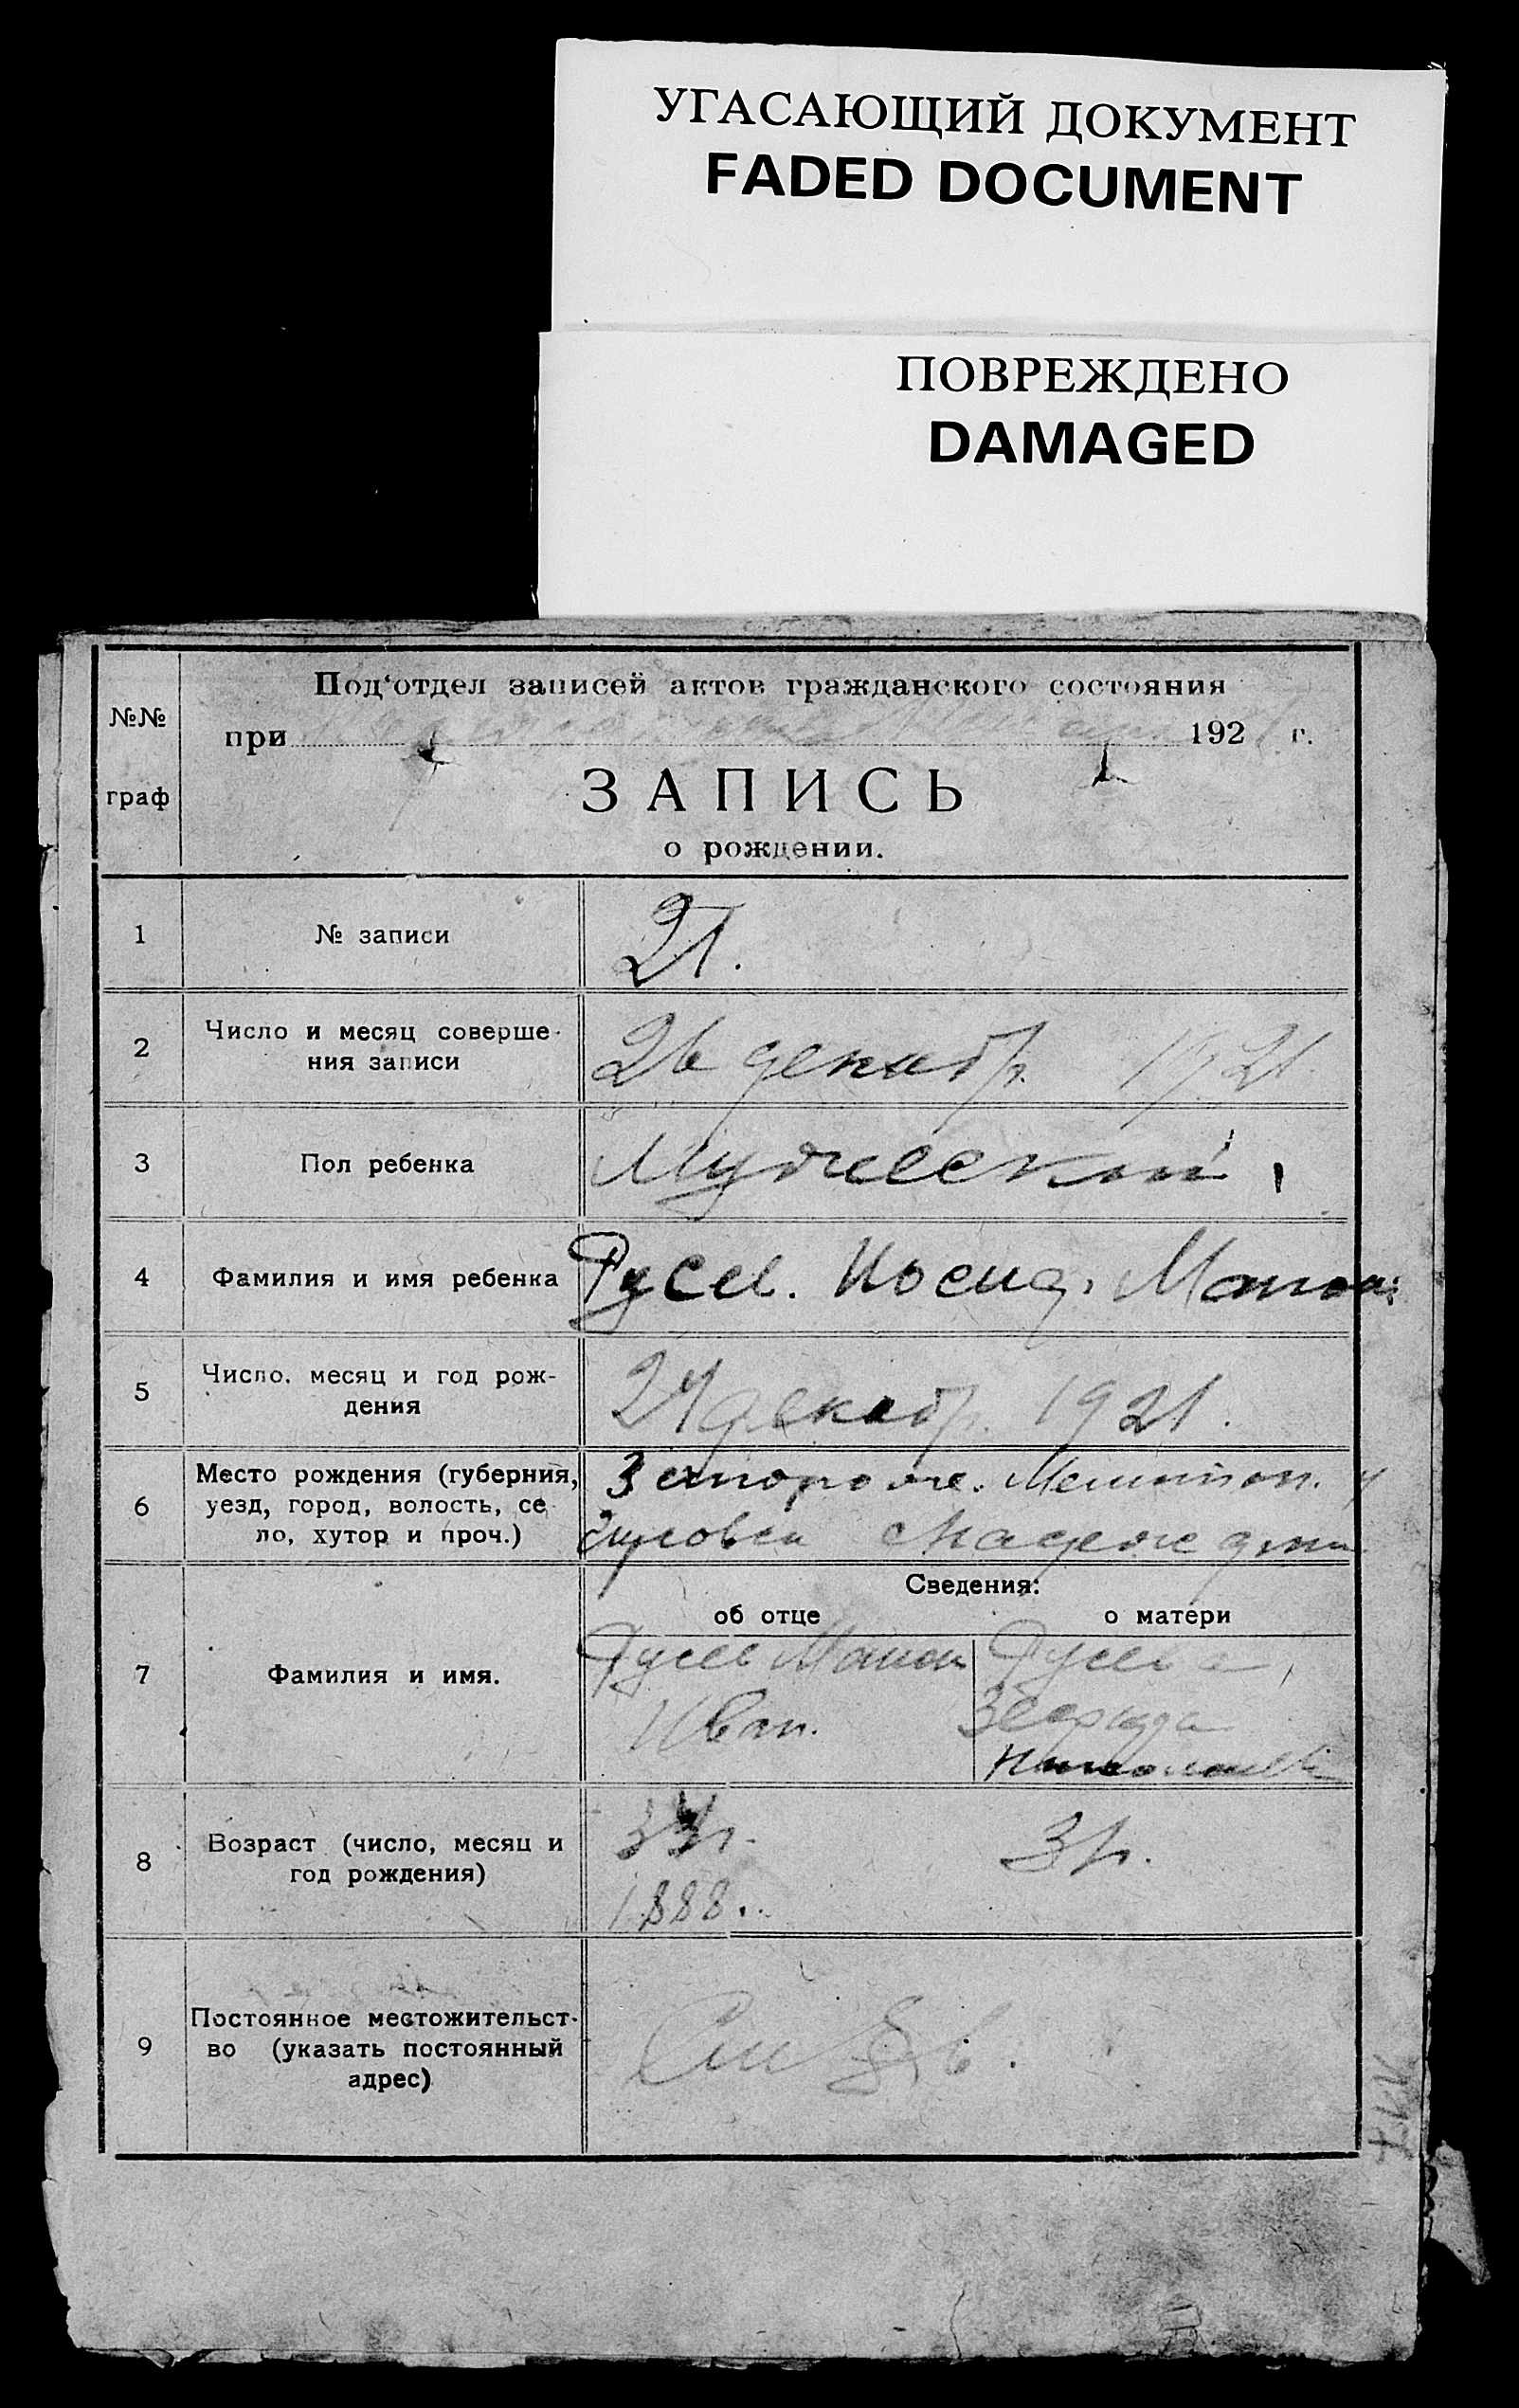 УГАСАЮЩИЙ ДОКУМЕНТ
FADED DOCUMENT
ПОВРЕЖДЕНО
DAMAGED
№№
граф
Под‘отдел записей актов гражданского состояния
при 192 г.
ЗАПИСЬ
о рождении.
1
№ записи
21.
2
Число и месяц соверше-
ния записи
26 декабр. 1921
3
Пол ребенка
Мужеский
4
Фамилия и имя ребенка
Гусев.
5
Число, месяц и год рож-
дения
24 декабр. 1921.
6
Место рождения (губерния,
уезд, город, волость, се
ло, хутор и проч.)
Запорож. Мелитоп. у
7
Фамилия и имя.
Сведения:
об отце
о матери
Гусев
Иван.
Гусева
8
Возраст (число, месяц и
год рождения)
1888..
31г.
9
Постоянное местожительст-
во (указать постоянный
адрес)